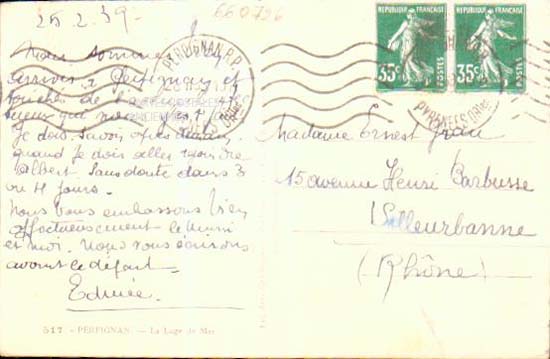 25.2.39-
660726
Nous sommes
arrivés à Perpignan et
de l'
que nous
Je dois savoir après demain
quand je dois aller rejoindre
Albert. Sans doute dans 3
ou 4 jours.
Nous vous embrassons bien
affectueusement le Mimi
et moi. Nous vous écrirons
avant le départ.
Edmée.
517 - PERPIGNAN. - La Loge de Mer
PERPIGNAN R.P.
PYRÉNÉES ORles
REPUBLIQUE FRANÇAISE
35c POSTES
REPUBLIQUE FRANÇAISE
35c POSTES
Madame Ernest Jean
15 avenue Henri Barbusse
Villeurbanne
(Rhône)